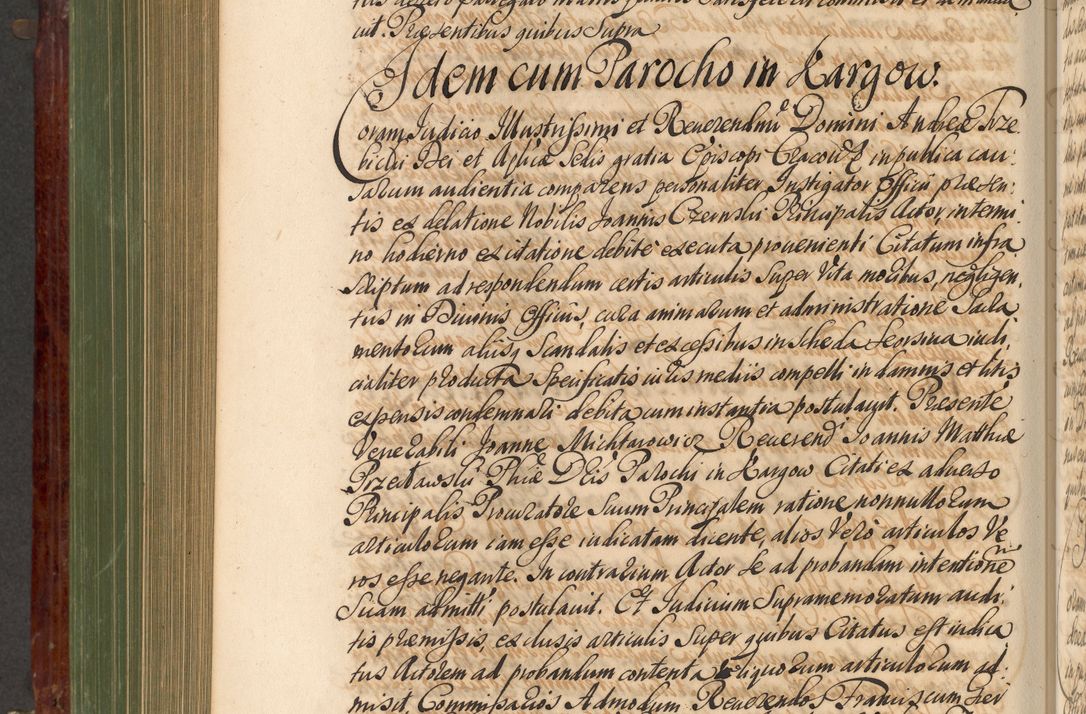 cit. Præsentibus quibus supra
Idem cum Parocho in Kargow.
Coram Judicio Illustrissimi et Reverendmi Domini Andreæ Trze
bicki Dei et Aplicæ Sedis gratia Episcopi Cracov in publica cau:
sarum audientia comparens personaliter Instigator Officii præsen:
tis ex delatione Nobilis Joannis Czernski Principalis Actor, in termi
no hodierno ex citatione debite executa provenienti Citatum infra
scriptum ad respondendum certis articulis super Vita moribus, negligen
tiis in Divinis Officiis, cura animarum et administratione Sacra
mentorum aliisq scandalis et excessibus in scheda seorsiva iudi,
cialiter producta specificatis iuris mediis compelli in damnis et litis
expensis condemnari debita cum instantia postulavit. Præsente
Venerabili Joanne Michtarowicz Reverend Joannis Matthiæ
Przecławski Phiæ Dris Parochi in Kargow Citati ex adverso
Principalis Procuratore suum Principalem ratione nonnullorum
articulorum iam esse iudicatam dicente, alios Vero articulos Ve
ros esse negante. In contrarium Actor se ad probandam intentione
suam admitti postulavit. Et Judicium supramemoratum audi:
tis præmissis, exclusis articulis super quibus Citatus est iudica
tus Actorem ad probandum contenta reliquorum articulorum ad:
misit, Commissarios Admodum Reverendos Franciscum